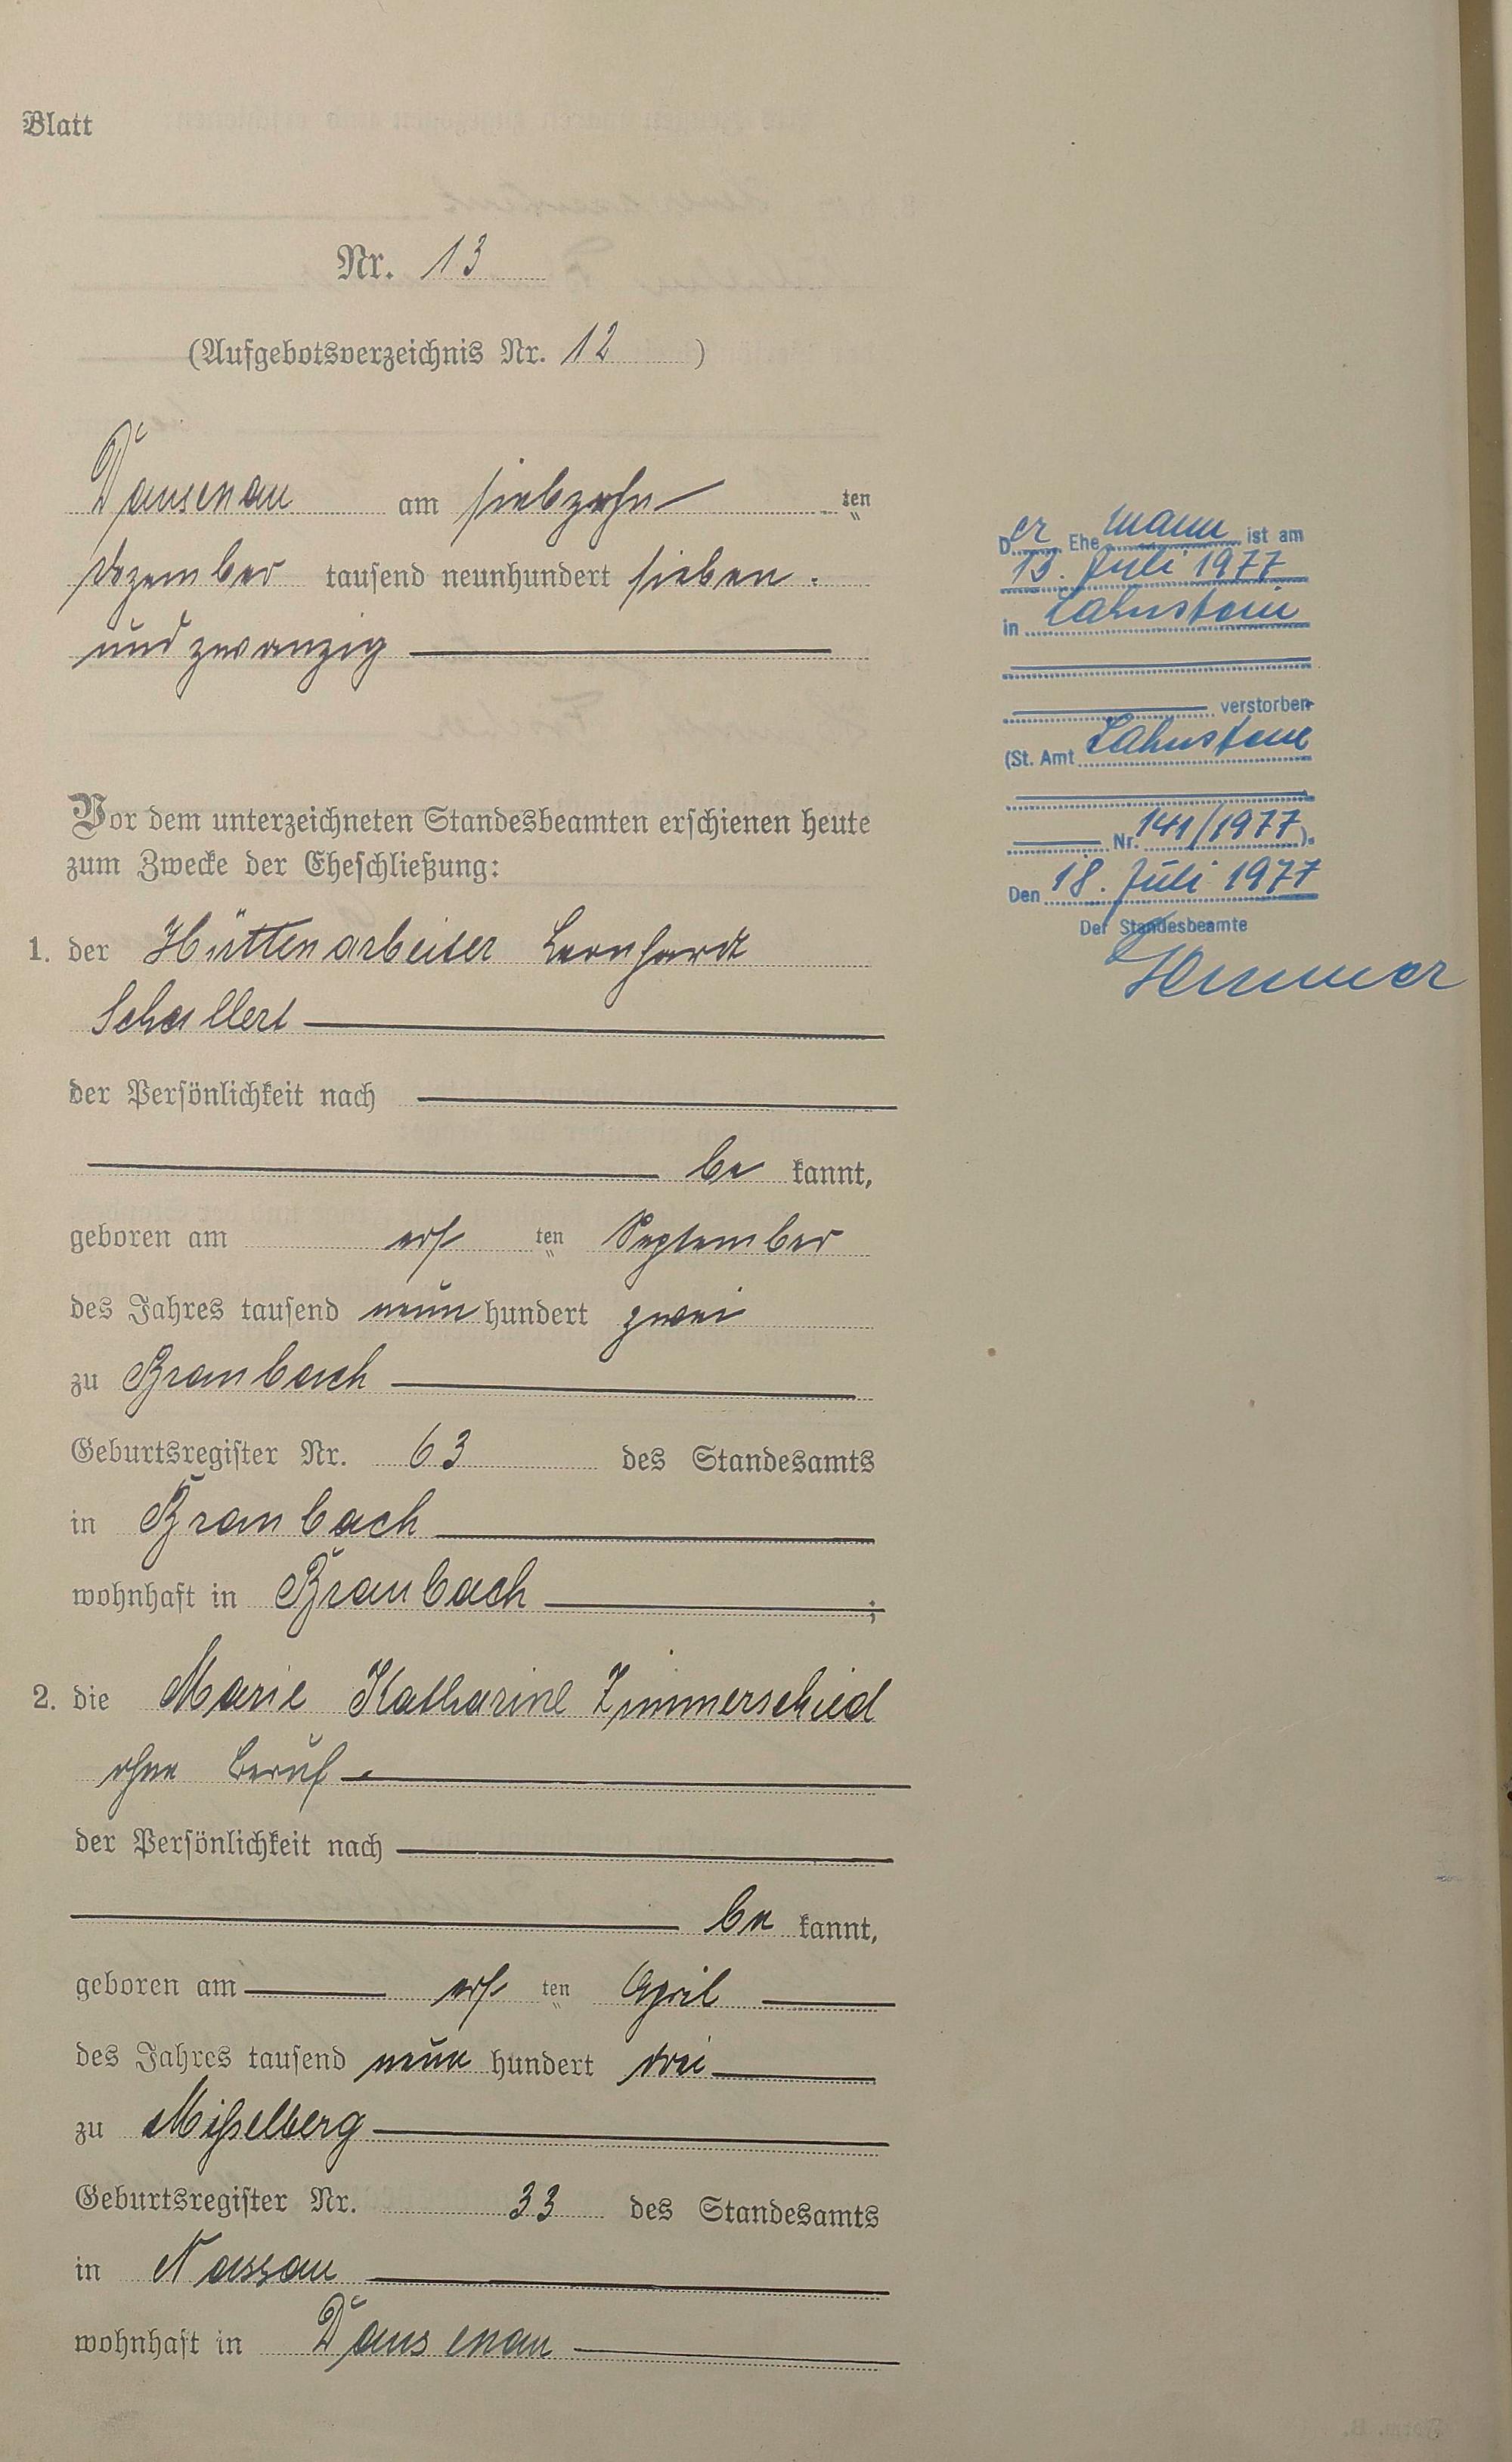 Blatt
Nr. 13
(Aufgebotsverzeichnis Nr. 12 )
Dausenau am siebzehn ten
Dezember tausend neunhundert sieben
und zwanzig
Vor dem unterzeichneten Standesbeamten erschienen heute
zum Zwecke der Eheschließung:
1. der Hüttenarbeiter Leonhardt
Schallert
der Persönlichkeit nach
be kannt,
geboren am ers ten September
des Jahres tausend neun hundert zwei
zu Braubach
Geburtsregister Nr. 63 des Standesamts
in Braubach
wohnhaft in Braubach ;
2. die Marie Katharine Zimmerschied
ohne Beruf
der Persönlichkeit nach
be kannt,
geboren am ers ten April
des Jahres tausend neun hundert drei
zu Mißelberg
Geburtsregister Nr. 33 des Standesamts
in Nassau
wohnhaft in Dausenau
Der Ehemann ist am
13. Juli 1977
in Lahnstein
verstorben
(St. Amt Lahnstein
Nr. 141/1977).
Den 18. Juli 1977
Der Standesbeamte